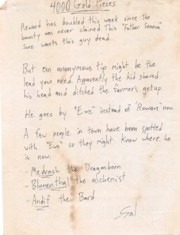 4000 Gold Pieces
Reward has doubled this week since the
bounty was never claimed. This "Father Senson"
sure wants this guy dead.
But an anonymous tip might be the
lead you need. Apparently the kid shaved
his head and ditched the farmer's getup.
He goes by "Ewe" instead of "Rowans" now
A few people in town have been spotted
with "Ewe" so they might know where he
is now.
- Medrash the Dragonborn
- Blumenthal the alchemist
- Andi? the Bard